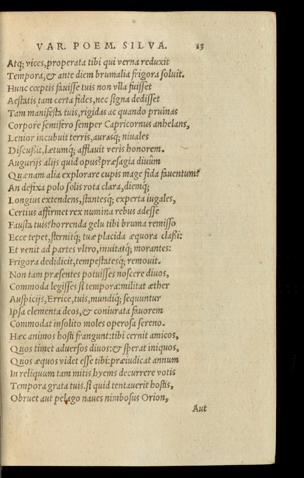 VAR. POEM. SILVA. 23
Atq; vices, properata tibi qui verna reduxit
Tempora, & ante diem brumalia frigora soluit.
Hunc cœptis fauisse tuis non vlla fuisset
Aestatis tam certa fides, nec signa dedisset
Tam manifesta tuis, rigidas ac quando pruinas
Corpore semifero semper Capricornus anhelans,
Lenior incubuit terris, aurasq; niuales
Discussit, lætumq; afflauit veris honorem.
Augurijs alijs quid opus? præsagia diuûm
Quænam alia explorare cupis mage fida fauentum?
An defixa polo solis rota clara, diemq;
Longius extendens, stantesq; experta iugales,
Certius affirmet rex numina rebus adesse
Fausta tuis? horrenda gelu tibi bruma remisso
Ecce tepet, sternitq; tuæ placida æquora classi:
Et venit ad partes vltro, inuitatq; morantes:
Frigora dedidicit, tempestatesq; remouit.
Non tam præsentes potuisses noscere diuos,
Commoda legisses si tempora: militat æther
Auspicijs, Errice, tuis, mundiq; sequuntur
Ipsa elementa deos, & coniurata fauorem
Commodat insolito moles operosa sereno.
Hæc animos hosti frangunt: tibi cernit amicos,
Quos timet aduersos diuos: & sperat iniquos,
Quos æquos videt esse tibi: præiudicat annum
In reliquum tam mitis hyems decurrere votis
Tempora grata tuis. si quid tentauerit hostis,
Obruet aut pelago naues nimbosus Orion,
Aut